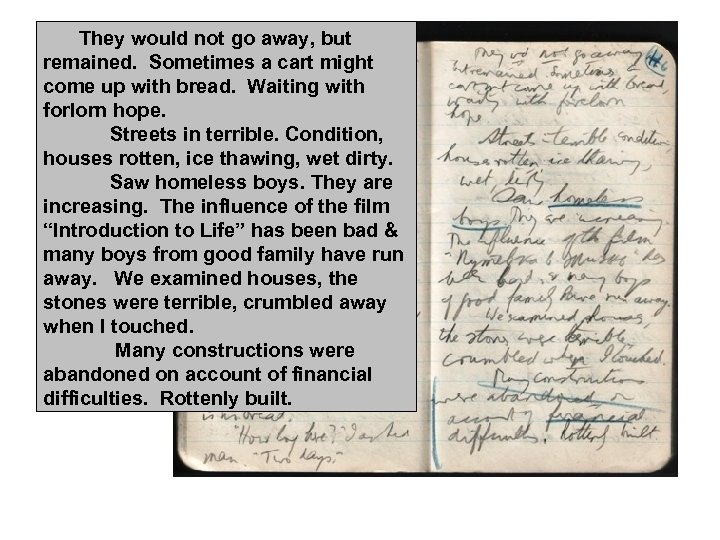 They would not go away, but
remained. Sometimes a cart might
come up with bread. Waiting with
forlorn hope.
Streets in terrible. Condition,
houses rotten, ice thawing, wet dirty.
Saw homeless boys. They are
increasing. The influence of the film
“Introduction to Life” has been bad &
many boys from good family have run
away. We examined houses, the
stones were terrible, crumbled away
when I touched.
Many constructions were
abandoned on account of financial
difficulties. Rottenly built.
is no bread.
"How long here?" I asked
man. "Two days."
They wd not go away
but remained. Sometimes a
cart mt come up with bread
waiting with forlorn
hope.
Streets - terrible condition,
houses rotten, ice thawing,
wet, dirty
Saw homeless
boys. They are increasing.
The influence of the film
has
been bad & many boys
of good family have run away.
We examined houses,
the stones were terrible,
crumbled when I touched.
Many constructions
were abandoned on
account of financial
difficulties. Rottenly built.